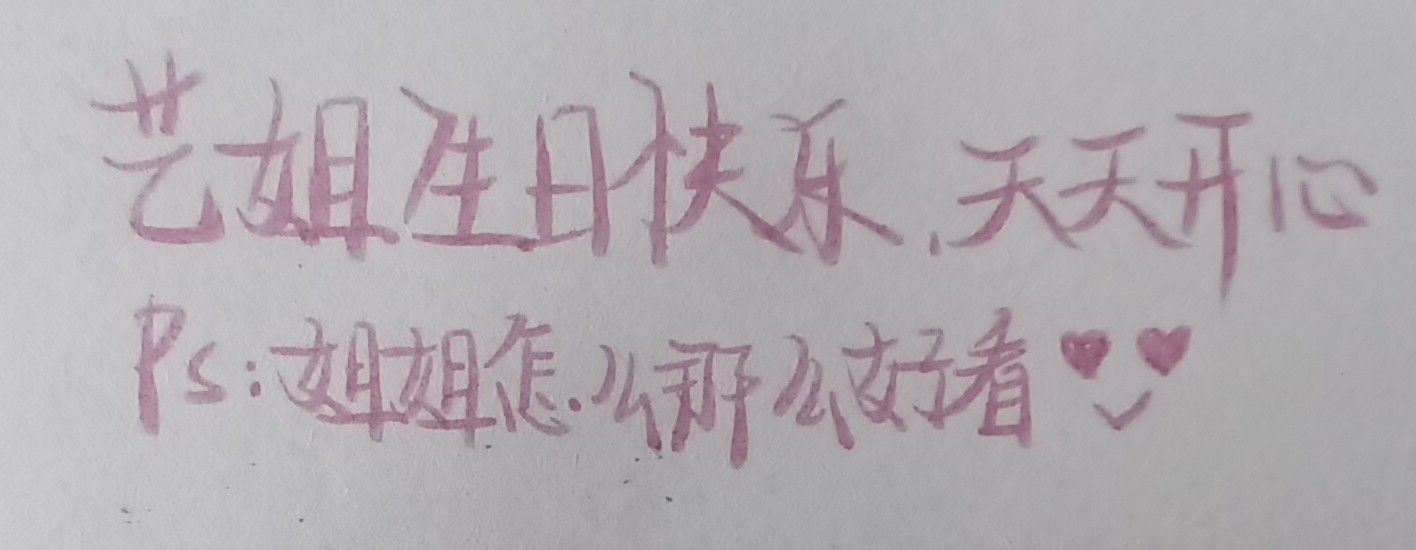 艺姐生日快乐,天天开心
Ps:姐姐怎么那么好看